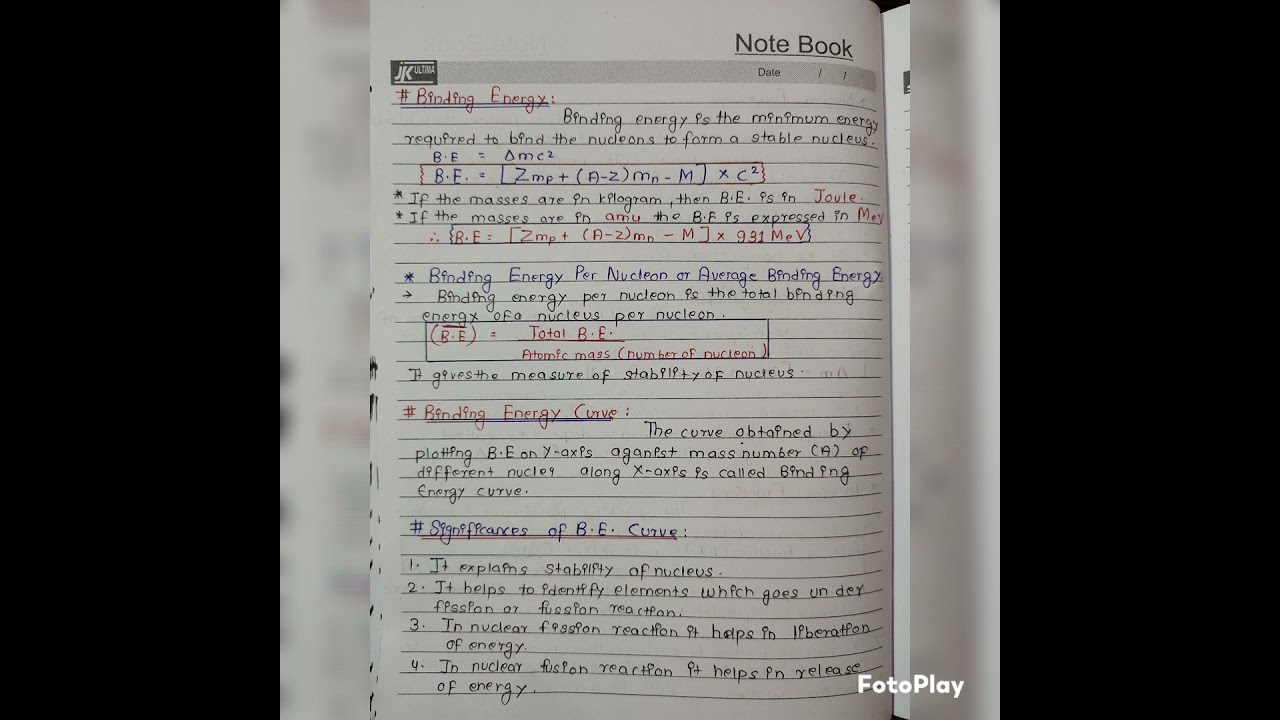 Note Book
JK ULTIMA
Date / /
# Binding Energy:
Binding energy is the minimum energy
required to bind the nucleons to form a stable nucleus.
B.E = Δmc²
{ B.E. = [Zmp + (A-Z)mn - M] × c² }
* If the masses are in kilogram, then B.E. is in Joule.
* If the masses are in amu the B.E is expressed in MeV
∴ {B.E = [Zmp + (A-Z)mn - M] × 931 MeV}
* Binding Energy Per Nucleon or Average Binding Energy
→ Binding energy per nucleon is the total binding
energy of a nucleus per nucleon.
(B.E) = Total B.E.
Atomic mass (number of nucleon)
It gives the measure of stability of nucleus.
# Binding Energy Curve:
The curve obtained by
plotting B.E on Y-axis aganist mass number (A) of
different nuclei along X-axis is called Binding
Energy curve.
# Significances of B.E. Curve:
1. It explains stability of nucleus.
2. It helps to identify elements which goes un der
fission or fussion reaction.
3. In nuclear fission reaction it helps in liberation
of energy.
4. In nuclear fusion reaction it helps in release
of energy.
FotoPlay